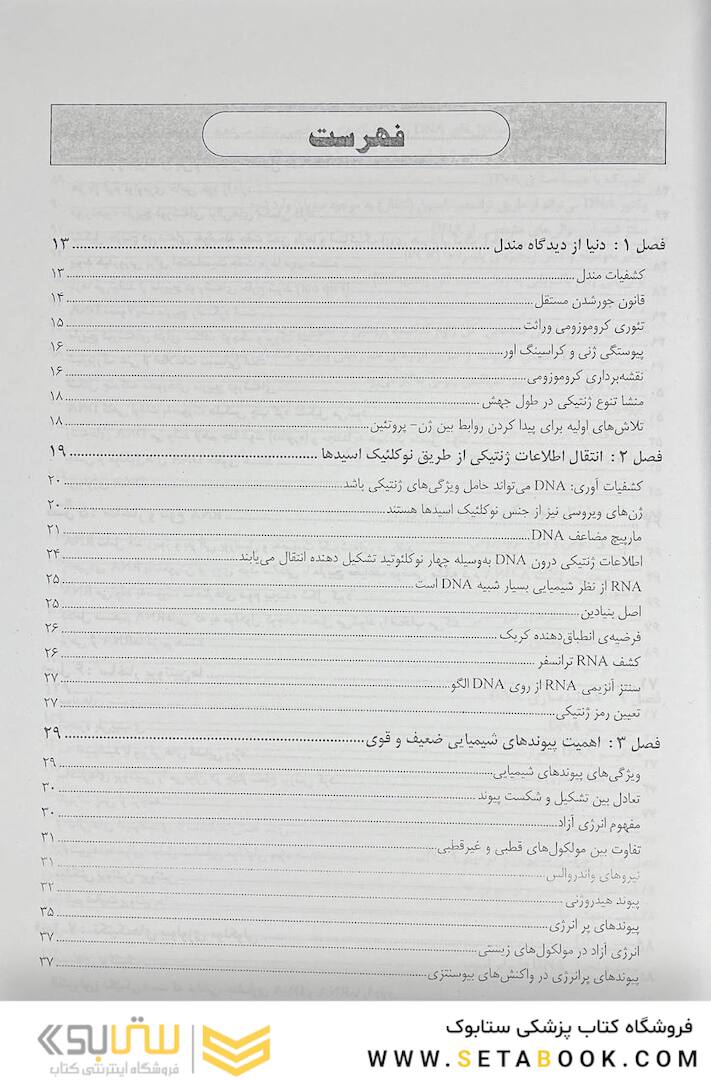 فهرست
فصل ۱: دنیا از دیدگاه مندل ........ ۱۳
کشفیات مندل ........ ۱۳
قانون جورشدن مستقل ........ ۱۴
تئوری کروموزومی وراثت ........ ۱۵
پیوستگی ژنی و کراسینگ اور ........ ۱۶
نقشه‌برداری کروموزومی ........ ۱۶
منشا تنوع ژنتیکی در طول جهش ........ ۱۸
تلاش‌های اولیه برای پیدا کردن روابط بین ژن- پروتئین ........ ۱۸
فصل ۲: انتقال اطلاعات ژنتیکی از طریق نوکلئیک اسیدها ........ ۱۹
کشفیات آوری: DNA می‌تواند حامل ویژگی‌های ژنتیکی باشد ........ ۲۰
ژن‌های ویروسی نیز از جنس نوکلئیک اسیدها هستند ........ ۲۰
مارپیچ مضاعف DNA ........ ۲۱
اطلاعات ژنتیکی درون DNA به‌وسیله چهار نوکلئوتید تشکیل دهنده انتقال می‌یابند ........ ۲۴
RNA از نظر شیمیایی بسیار شبیه DNA است ........ ۲۵
اصل بنیادین ........ ۲۵
فرضیه‌ی انطباق‌دهنده کریک ........ ۲۶
کشف RNA ترانسفر ........ ۲۶
سنتز آنزیمی RNA از روی DNA الگو ........ ۲۷
تعیین رمز ژنتیکی ........ ۲۷
فصل ۳: اهمیت پیوندهای شیمیایی ضعیف و قوی ........ ۲۹
ویژگی‌های پیوندهای شیمیایی ........ ۲۹
تعادل بین تشکیل و شکست پیوند ........ ۳۰
مفهوم انرژی آزاد ........ ۳۰
تفاوت بین مولکول‌های قطبی و غیرقطبی ........ ۳۱
نیروهای واندروالس ........ ۳۱
پیوند هیدروژنی ........ ۳۲
پیوندهای پر انرژی ........ ۳۵
انرژی آزاد در مولکول‌های زیستی ........ ۳۷
پیوندهای پرانرژی در واکنش‌های بیوسنتزی ........ ۳۷
فروشگاه کتاب پزشکی ستابوک
WWW.SETABOOK.COM
ستابوک
فروشگاه اینترنتی کتاب